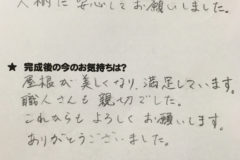 人柄に安心してお願いしました。
★ 完成後の今のお気持ちは?
屋根が美しくなり、満足しています。
職人さんも親切でした。
これからもよろしくお願いします。
ありがとうございました。